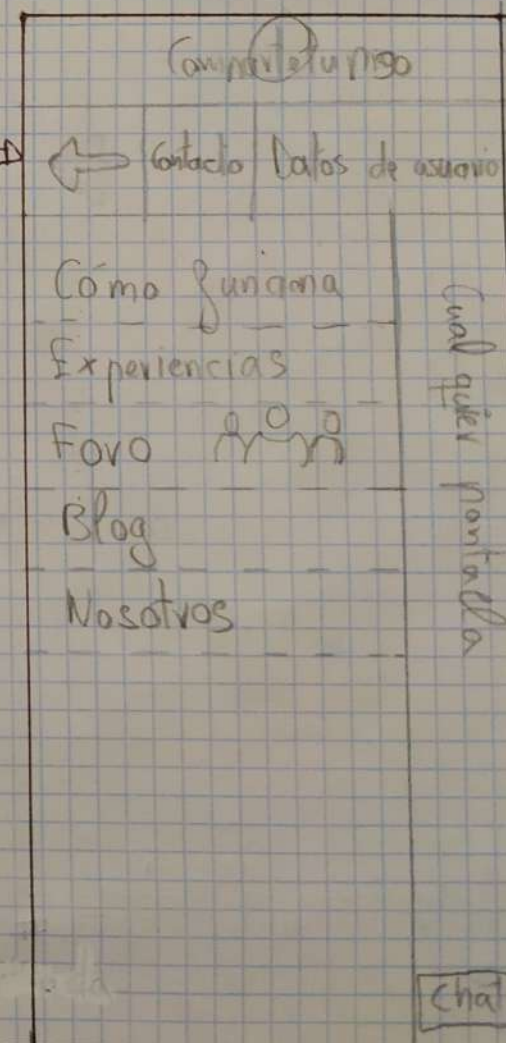 Comparte tu piso
Contacto Datos de usuario
Cómo funciona
Experiencias
Foro
Blog
Nosotros
Cualquier pantalla
Chat